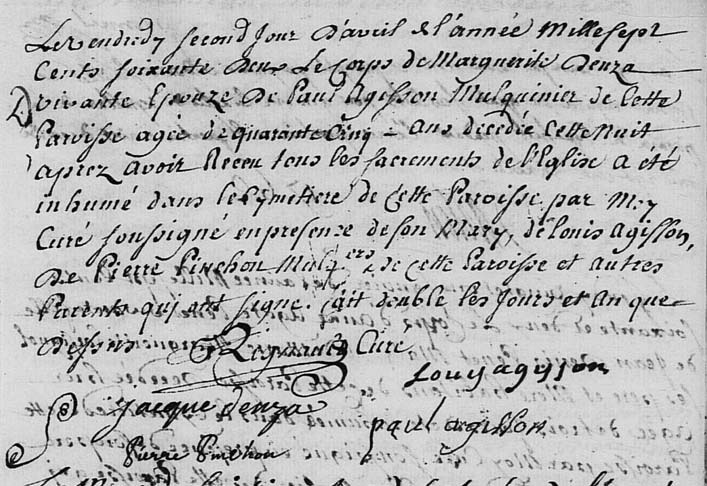 Le vendredy second Jour d'avril de l'année Mille sept
Cents soixante deux le Corps de Marguerite Denza
vivante Epouze de Paul Agisson Mulquinier de Cette
Paroisse agée de quarante Cinq ans decedée cette Nuit
aprez avoir Receu tous les sacrements de l'Eglise a été
inhumé dans le Cymetiere de cette Paroisse par Moy
Curé soussigné en presence de son Mary, de Louis Agisson,
de Pierre Pinchon Mulq.iers de cette Paroisse et autres
Parents qui ont signé. fait double les Jours et An que
dessus Curé
Louy agisson
Jacque denza
paul agisson
Pierre Pinchon